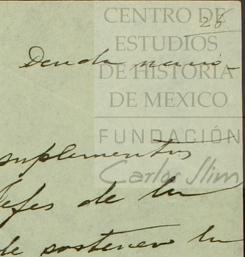 CENTRO DE
26
ESTUDIOS
Deuda
DE HISTORIA
DE MEXICO
FUNDACIÓN
suplementos
Carlos Slim
Jefes de la
de sostener la